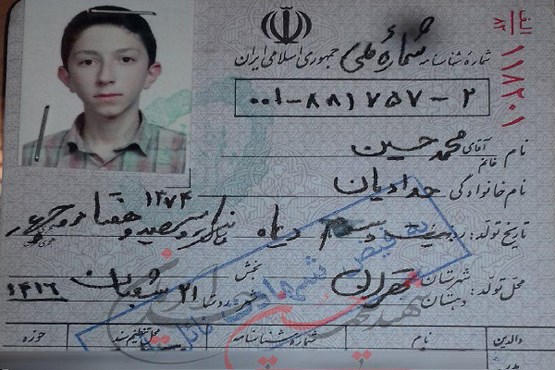 جمهوری اسلامی ایران
شمارهٔ شناسنامه
شمارهٔ ملی
۱۱۸۲۰۱
۰۰۱-۸۸۱۷۵۷-۲
نام آقای خانم محمد حسین
نام خانوادگی: حدادیان
تاریخ تولد: دی ماه یکهزار و سیصد و هفتاد و چهار ۱۳۷۴
محل تولد: شهرستان دهستان تهران بخش ۲۱ شعبان ۱۴۱۶
والدین نام شمارهٔ شناسنامه محل تنظیم سند حوزه